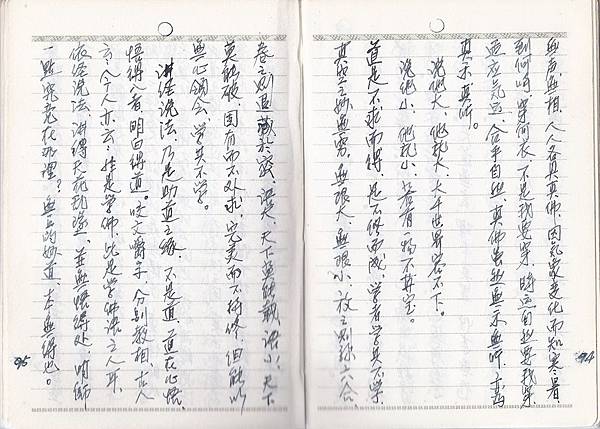 無聲無相、人人各具真佛、因氣象變化而知寒暑、
到何時穿何衣、不是我要穿、時運自然要我穿、
適應氣運、合乎自然、真佛無示無所、
真示真所。
說他大、他就大、大千世界容不下。
說他小、他就小、若有一物不算空。
道是不求而得、是不修而成、學者學其不學、
真我之妙無窮、無限大、無限小、放之則彌六合、
94
卷之則退藏於密、語大、天下莫能載、語小、天下
莫能破、固有而不外求、完美而不待修、但能以
無心領會、學其不學。
講經說法、乃是助道之緣、不是道、道在心悟、
悟得入者、明白得道。咬文嚼字、分別教相、古人
言、今人亦言、雖是學佛、此是學佛法之人耳、
依經說法、講得天花亂墜、並無悟得處、明師
一點究竟在那裡？無上的妙道、本無得也。
95